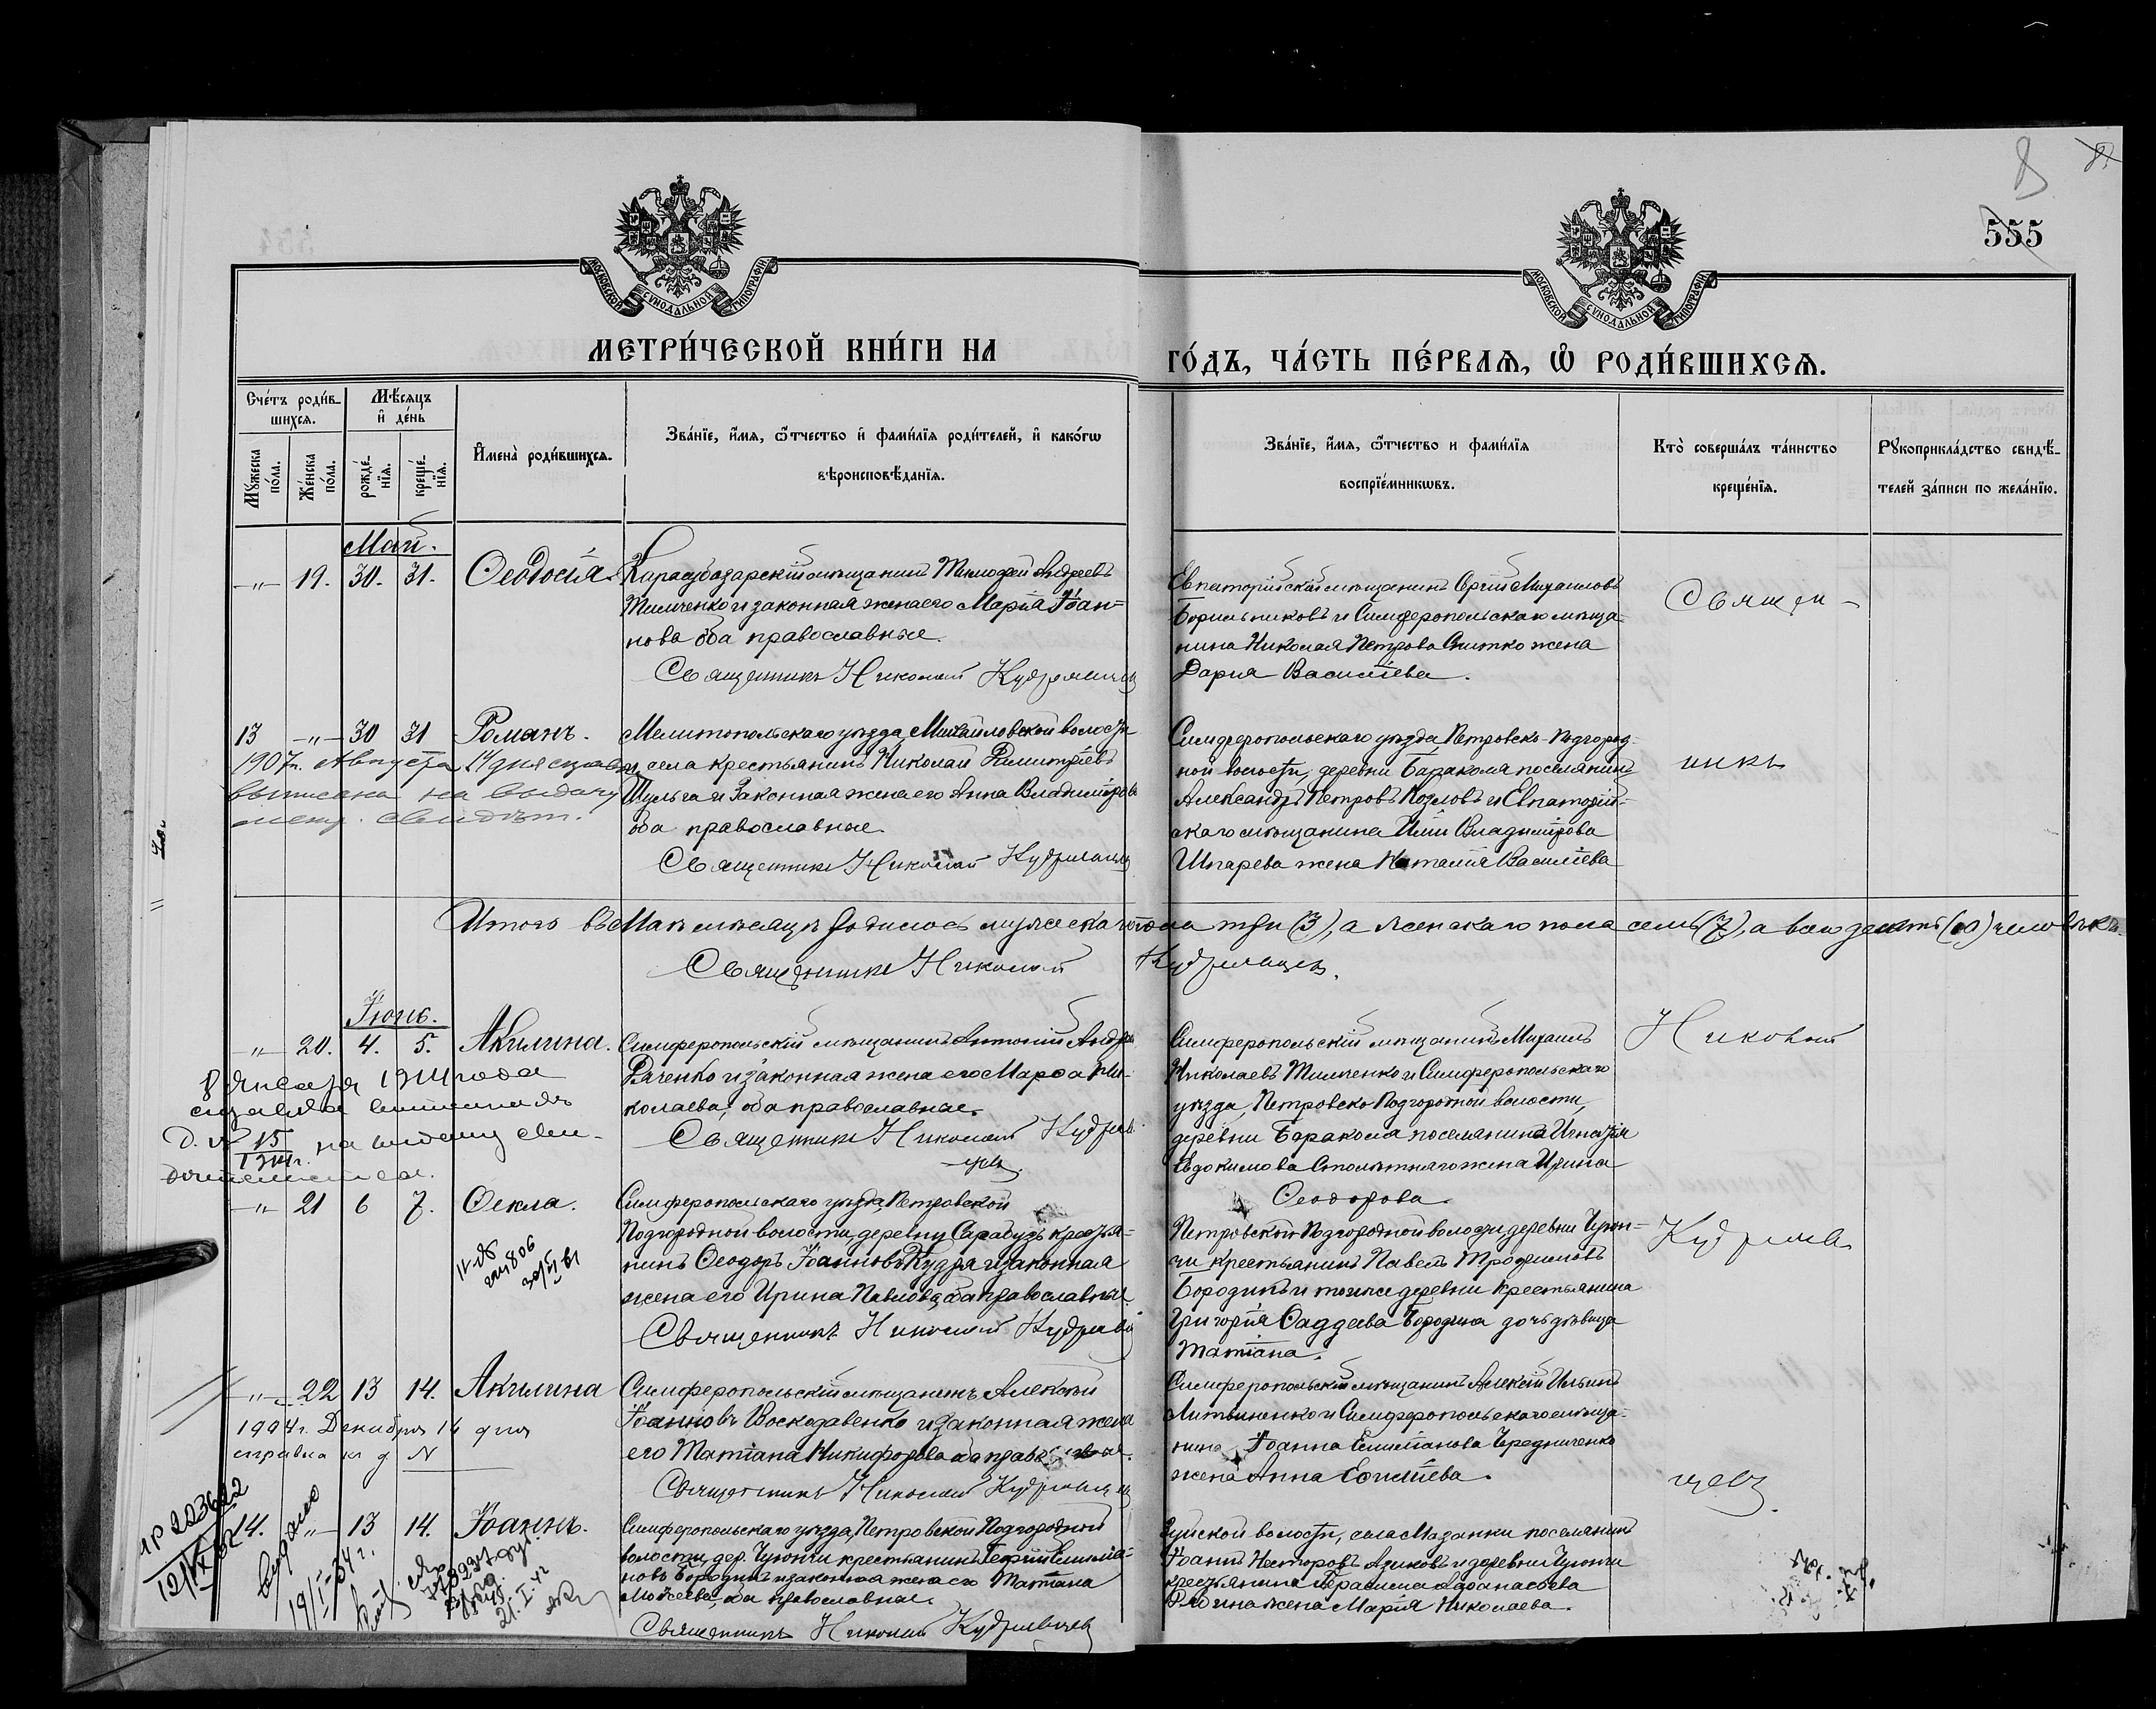 555
8
МОСКОВСКОЙ СѴНОДАЛЬНОЙ ТИПОГРАФІИ
МОСКОВСКОЙ СѴНОДАЛЬНОЙ ТИПОГРАФІИ
МЕТРИ́ЧЕСКОЙ КНИ́ГИ НА
ГО́ДЪ, ЧА́СТЬ ПЕ́РВАѦ, Ѡ҆ РОДИ́ВШИХСѦ.
Сче́тъ роди́в-
шихсѧ.
Мѣ́сѧцъ
и҆ де́нь
Мꙋ́жеска
по́ла.
Же́нска
по́ла.
рожде́-
нїѧ.
креще́-
нїѧ.
И҆мена̀ роди́вшихсѧ.
Зва́нїе, и҆́мѧ, ѻ҆́тчество и҆ фами́лїѧ роди́телей, и҆ како́гѡ
вѣроисповѣ́данїѧ.
Зва́нїе, и҆́мѧ, ѻ҆́тчество и фами́лїѧ
воспрїе́мникѡвъ.
Кто̀ соверша́лъ та́инство
креще́нїѧ.
Рꙋкоприкла́дство свидѣ́-
телей за́писи по жела́нїю.
Май.
—„— 19. 30. 31. Ѳеодосія.
Карасубазарскій мѣщанинъ Тимофей Андреевъ
Тимченко и законная жена его Марія Іоан=
нова оба православные.
Священникъ Николай Кудрявцевъ
Евпаторійскій мѣщанинъ Сергій Михаиловъ
и Симферопольскаго мѣща-
нина Николая Петрова Снитко жена
Дарія Василіева.
Священ-
13 —„— 30 31 Романъ.
1907г. Августа 14 дня сдѣлана
выписана на выдачу
метр. свидѣт.
Мелитопольскаго уѣзда, Михайловской волости
и села крестьянинъ Николай Димитріевъ
Шульга и Законная жена его Анна Владимірова
оба православные.
Священникъ Николай Кудрявцевъ
Симферопольскаго уѣзда, Петровско-Подгород-
ной волости, деревни Баракола поселянинъ
Александръ Петровъ Козловъ и Евпаторій-
скаго мѣщанина Владимірова
Шпарева жена Наталія Василіева
никъ
Итого въ Маѣ мѣсяцѣ родилось мужеска пола три (3), а женскаго пола семь (7), а всего десять (10) человѣкъ.
Священникъ Николай Кудрявцевъ.
Іюнь.
—„— 20. 4. 5. Акилина.
8 Января 1914 года
сдѣлана выписка въ
д. № 15
1914г. на выдачу сви-
дѣтельства.
Симферопольскій мѣщанинъ Антоній Андр
Дяченко и законная жена его Марѳа Ни-
колаева, оба православные.
Священникъ Николай Кудряв-
цевъ.
Симферопольскій мѣщанинъ Михаилъ
Николаевъ Тимченко и Симферопольскаго
уѣзда, Петровско Подгородной волости,
деревни Баракола поселянина Игнатія
Евдокимова Столѣтняго жена Ирина
Ѳеодорова.
Николай
—„— 21 6 7. Ѳекла.
Симферопольскаго уѣзда, Петровской
Подгородной волости, деревни Сарабузъ крестья-
нинъ Ѳеодоръ Іоанновъ Кудря и законная
жена его Ирина Павлова, оба православные.
Священникъ Николай Кудрявц
Петровской Подгородной волости, деревни Чуюн-
чи крестьянинъ Павелъ Трофимовъ
Бородинъ и тойже деревни крестьянина
Григорія Ѳаддеева Бородина дочь дѣвица
Татіана.
Кудряв
—„— 22 13 14. Акилина
1904г. Декабря 14 дня
справка къ д N
Симферопольскій мѣщанинъ Алексѣй
Іоанновъ Воскодавенко и законная жена
его Татіана Никифорова оба православные.
Священникъ Николай Кудрявцевъ
Симферопольскій мѣщанинъ Алексій Ильинъ
Литвиненко и Симферопольскаго мѣща-
нина Іоанна Емиліанова Чередниченко
жена Анна Евѳиміева.
цевъ.
14. —„— 13 14. Іоаннъ.
Симферопольскаго уѣзда, Петровской Подгородной
волости, дер. Чуюнчи крестьянинъ Георгій Емилiа-
новъ Бородинъ и законная жена его Татіана
Моѵсеева, оба православные.
Священникъ Николай Кудрявцевъ
Зуйской волости, села Мазанки поселянинъ
Іоаннъ Несторовъ Азиковъ и деревни Чуюнчи
крестьянина Герасима Аѳанасьева
жена Марія Николаева.
19/I-34 г.
21.I.42